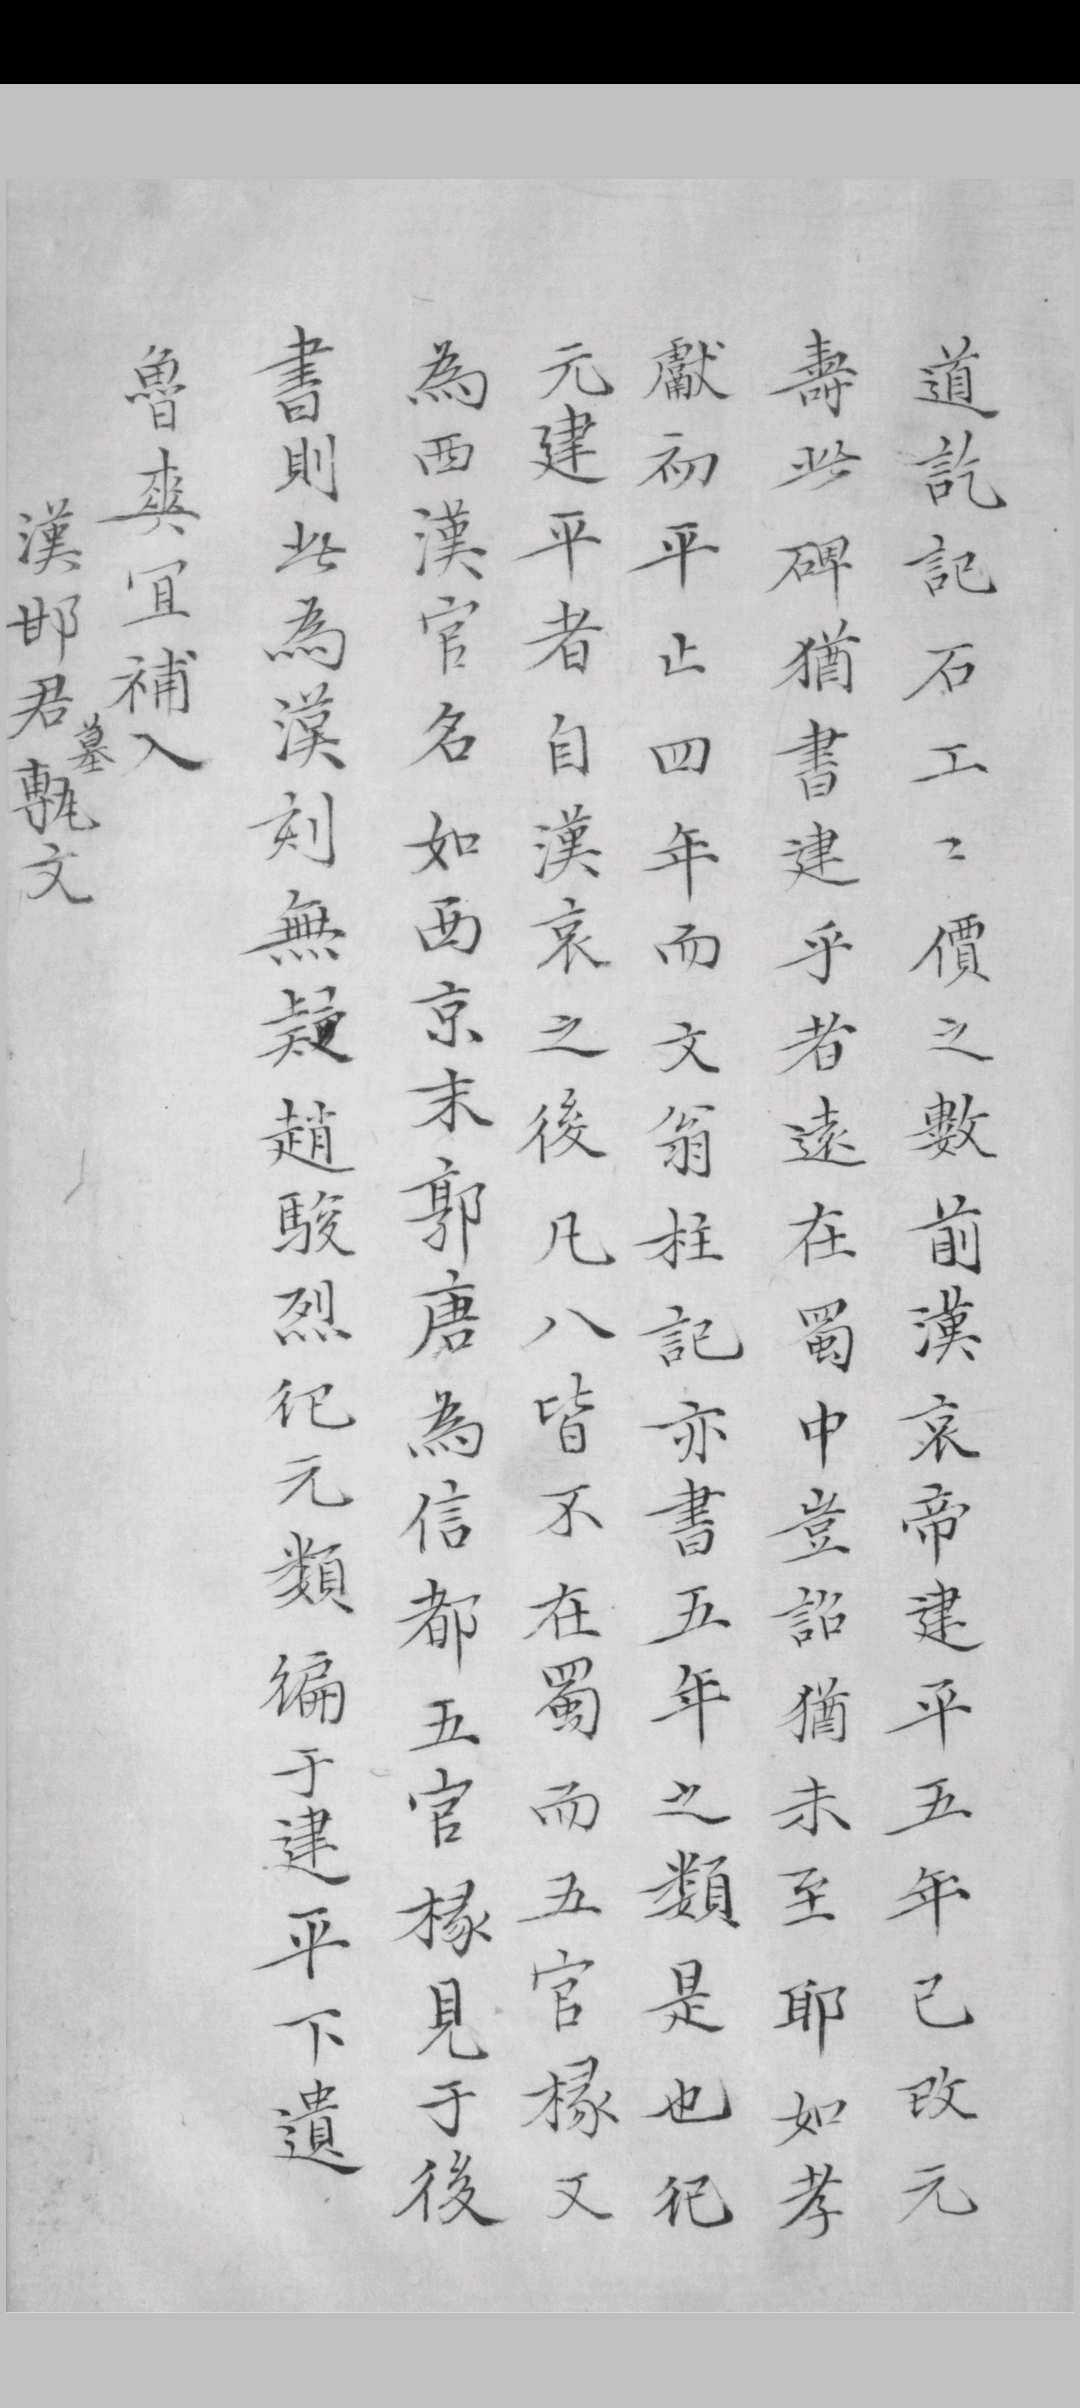 道訖記石工工價之數前漢哀帝建平五年已改元
壽此碑猶書建乎者遠在蜀中豈詔猶未至耶如孝
獻初平止四年而文翁柱記亦書五年之類是也紀
元建平者自漢哀之後凡八皆不在蜀而五官椽又
為西漢官名如西京末郭唐為信都五官椽見于後
書則此為漢刻無疑趙駿烈紀元類編于建平下遺
魯爽宜補入
漢邯君墓甎文